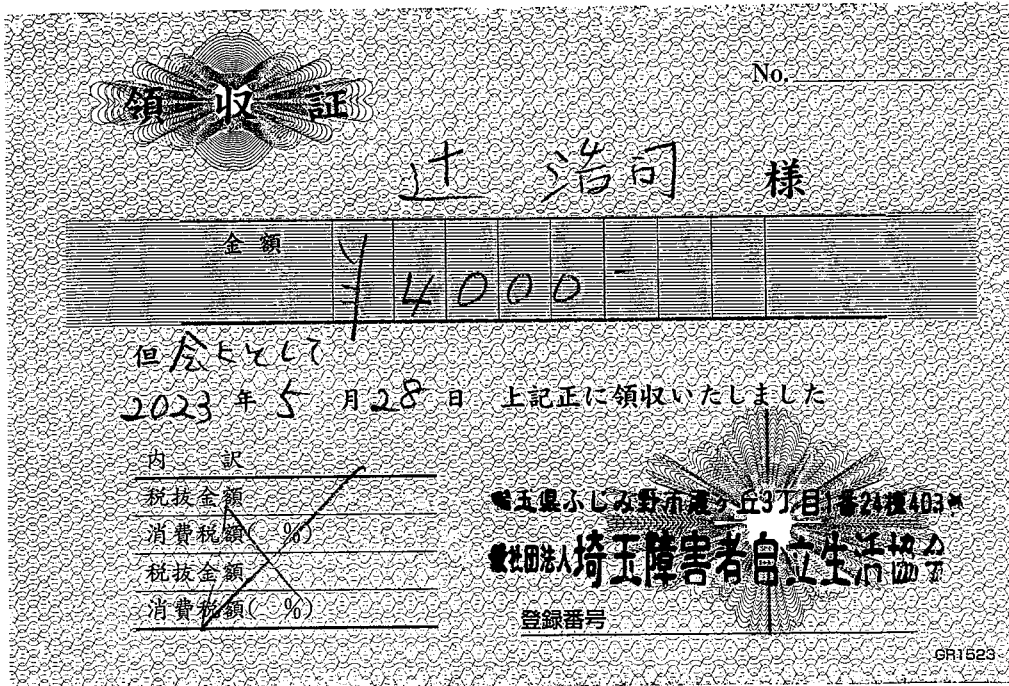 領収証
No.
辻 浩司 様
金額
¥4000-
但 会ヒとして
2023年5月28日 上記正に領収いたしました
内 訳
税抜金額
消費税額( %)
税抜金額
消費税額( %)
埼玉県ふじみ野市霞ヶ丘3丁目1番24棟403号
一般社団法人埼玉障害者自立生活協会
登録番号
GR1523